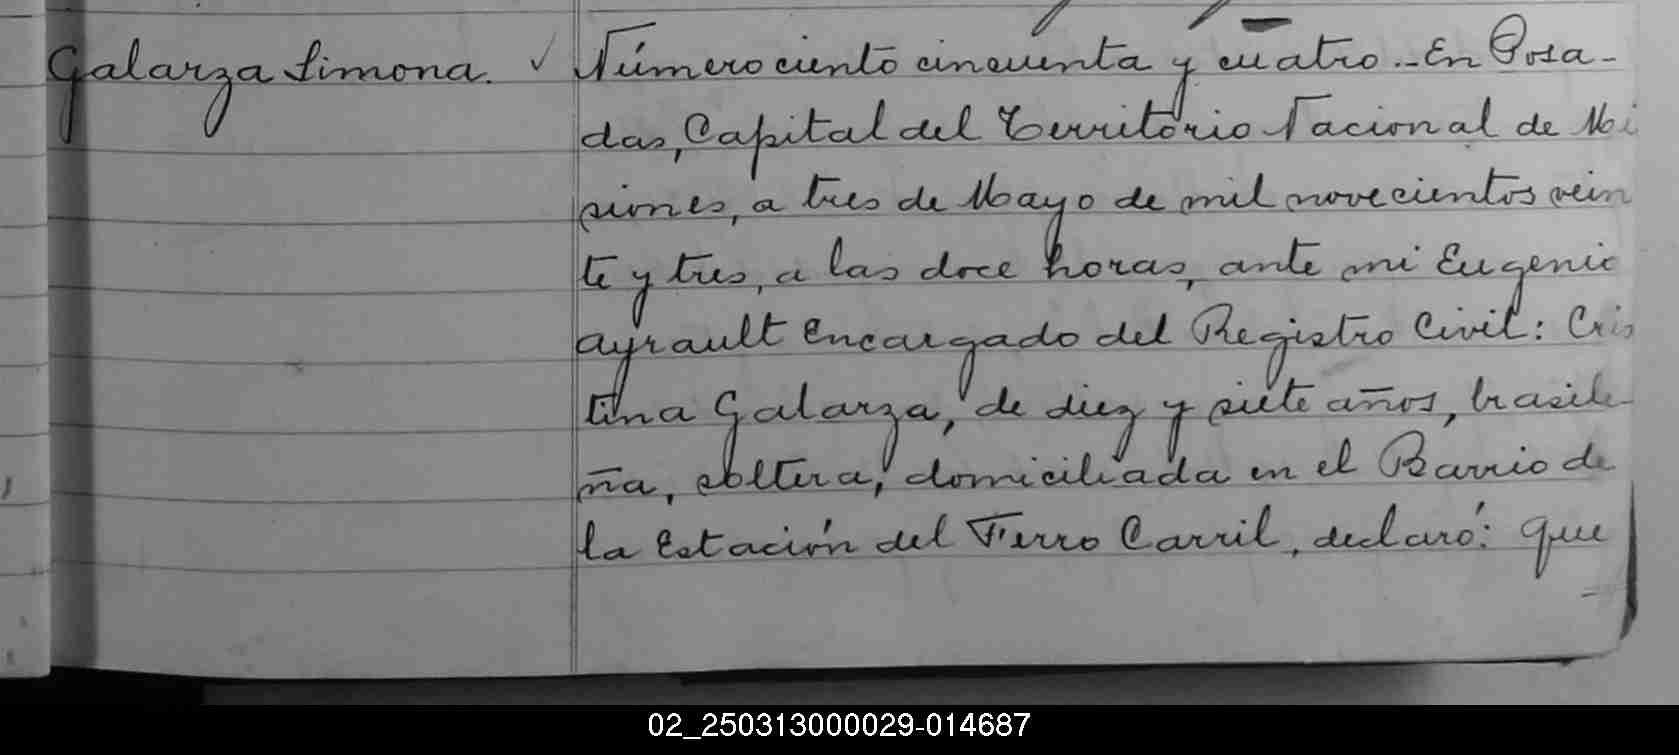 Galarza Simona. ✓ Número ciento cincuenta y cuatro. - En Posa-
das, Capital del Territorio Nacional de Mi
siones, a tres de Mayo de mil novecientos vein
te y tres, a las doce horas, ante mi Eugenio
Ayrault Encargado del Registro Civil: Cris
tina Galarza, de diez y siete años, brasile-
ña, soltera, domiciliada en el Barrio de
la Estación del Ferro Carril, declaró: que
02_250313000029-014687